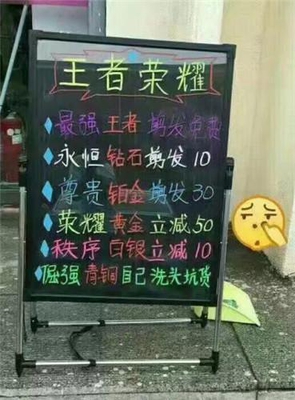 王者荣耀
最强王者 剪发免费
永恒钻石剪发10
尊贵铂金剪发30
荣耀黄金立减50
秩序白银立减10
倔强青铜自己洗头坑货